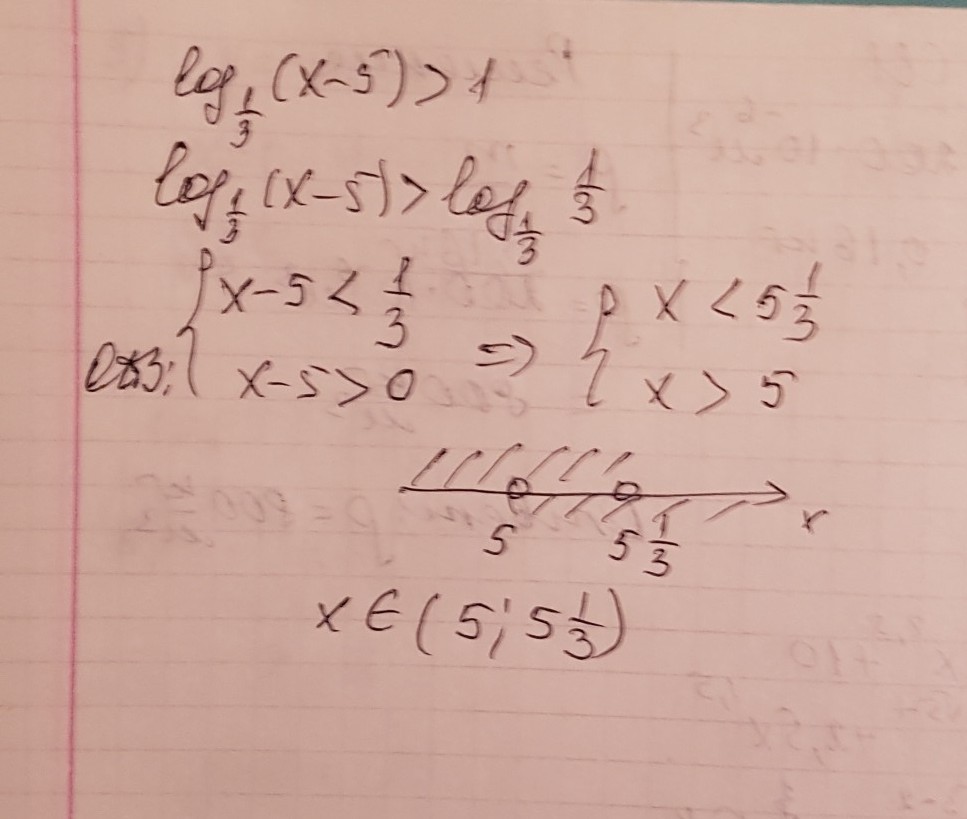 log_{1/3} (x-5) > 1
log_{1/3} (x-5) > log_{1/3} 1/3
{ x-5 < 1/3 ⇒ { x < 5 1/3
x-5 > 0 x > 5
5 5 1/3 x
x ∈ (5; 5 1/3)